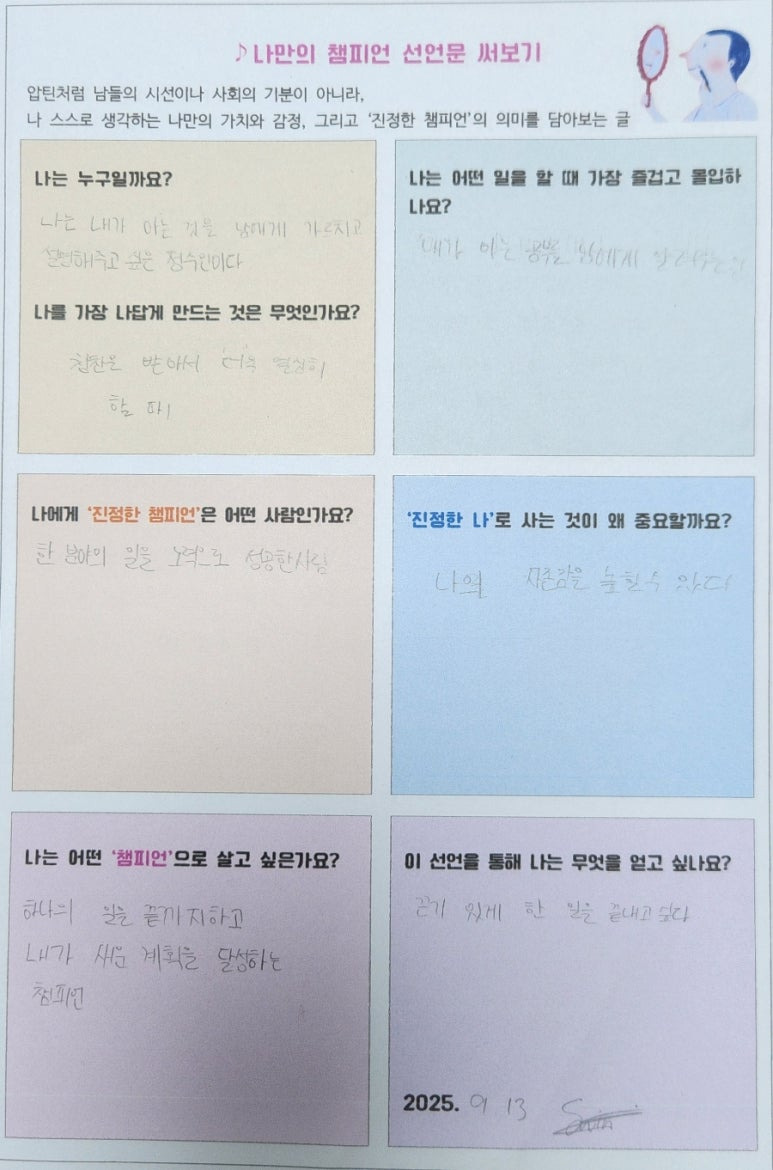 ♪나만의 챔피언 선언문 써보기
압틴처럼 남들의 시선이나 사회의 기분이 아니라,
나 스스로 생각하는 나만의 가치와 감정, 그리고 '진정한 챔피언'의 의미를 담아보는 글
나는 누구일까요?
나는 내가 아는 것을 남에게 가르치고
설명해주고 싶은 정수인이다
나를 가장 나답게 만드는 것은 무엇인가요?
칭찬을 받아서 더욱 열심히
할 때
나는 어떤 일을 할 때 가장 즐겁고 몰입하
나요?
내가 아는 공부를 남에게 알려주는 일
나에게 '진정한 챔피언'은 어떤 사람인가요?
한 분야의 일을 노력으로 성공한사람
'진정한 나'로 사는 것이 왜 중요할까요?
나의 자존감을 높힐수 있다
나는 어떤 '챔피언'으로 살고 싶은가요?
하나의 일을 끝까지하고
내가 세운 계획을 달성하는
챔피언
이 선언을 통해 나는 무엇을 얻고 싶나요?
끈기 있게 한 일을 끝내고 싶다
2025. 9 13